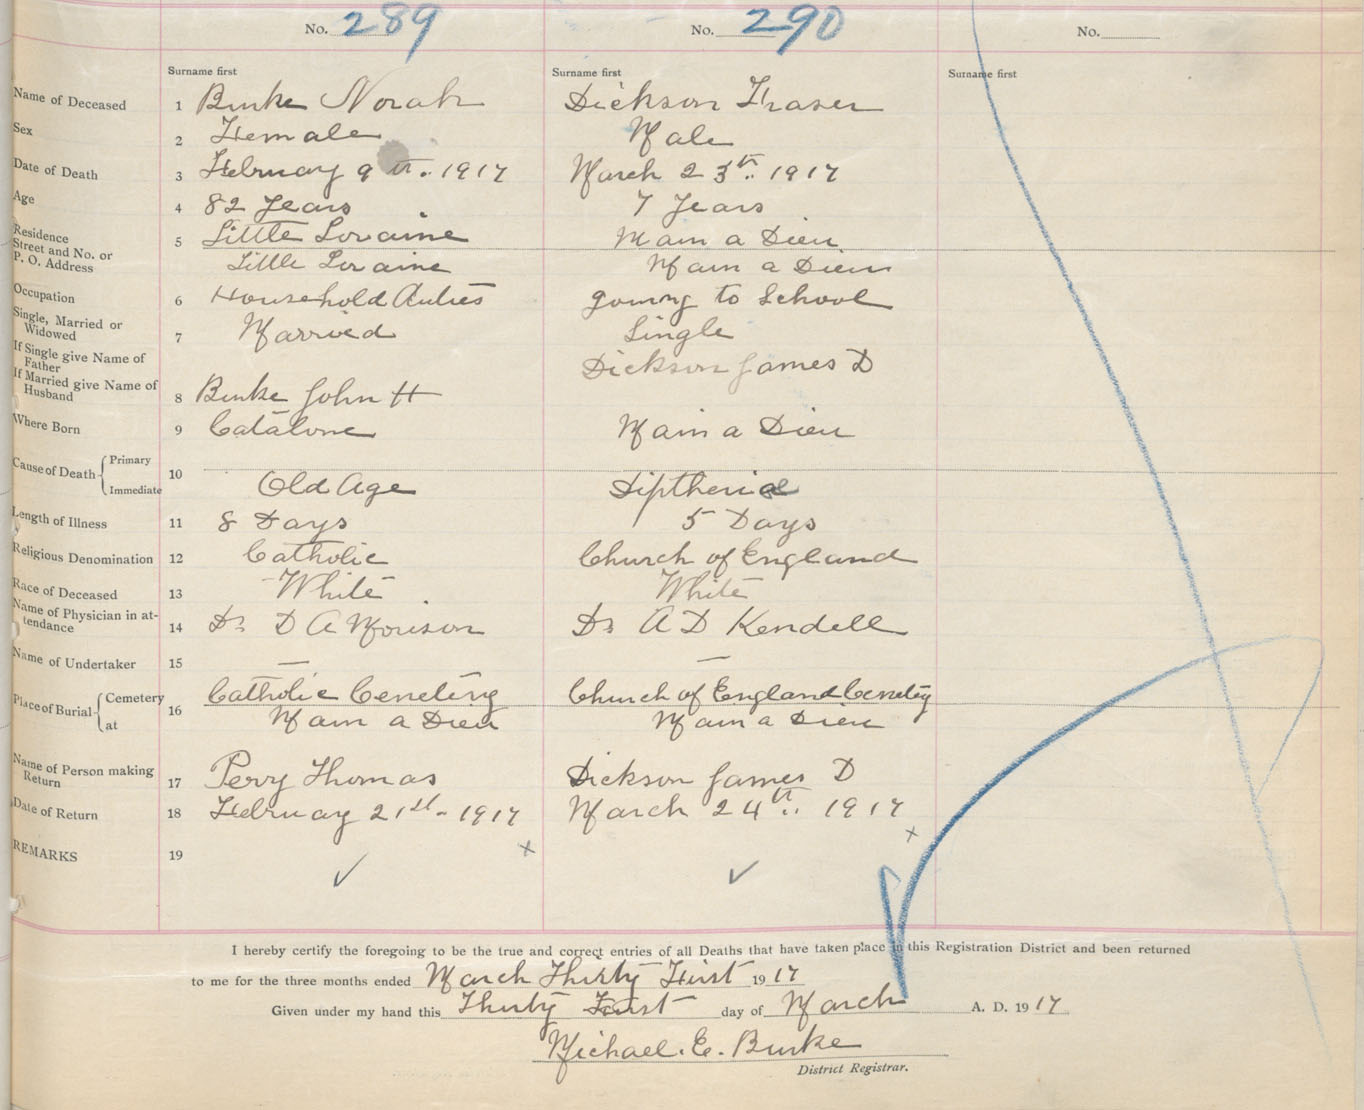 No. 289 No. 290 No.
Surname first Surname first Surname first
Name of Deceased 1 Burke Norah Dickson Fraser
Sex 2 Female Male
Date of Death 3 February 9th. 1917 March 23th. 1917
Age 4 82 Years 7 Years
Residence 5 Little Loraine Main a Dieu
Street and No. or
P. O. Address Little Loraine Main a Dieu
Occupation 6 Household Duties going to School
Single, Married or
Widowed 7 Married Single
If Single give Name of
Father Dickson James D
If Married give Name of
Husband 8 Burke John H
Where Born 9 Catalone Main a Dieu
Cause of Death Primary 10
Immediate Old Age Diptheria
Length of Illness 11 8 Days 5 Days
Religious Denomination 12 Catholic Church of England
Race of Deceased 13 White White
Name of Physician in at-
tendance 14 Dr D A Morison Dr A D Kendell
Name of Undertaker 15 — —
Place of Burial Cemetery 16 Catholic Cemetery Church of England Cemetery
at Main a Dieu Main a Dieu
Name of Person making
Return 17 Perry Thomas Dickson James D
Date of Return 18 February 21st - 1917 March 24th. 1917
REMARKS 19
I hereby certify the foregoing to be the true and correct entries of all Deaths that have taken place in this Registration District and been returned
to me for the three months ended March Thirty First 1917
Given under my hand this Thirty First day of March A. D. 1917
Michael. E. Burke
District Registrar.